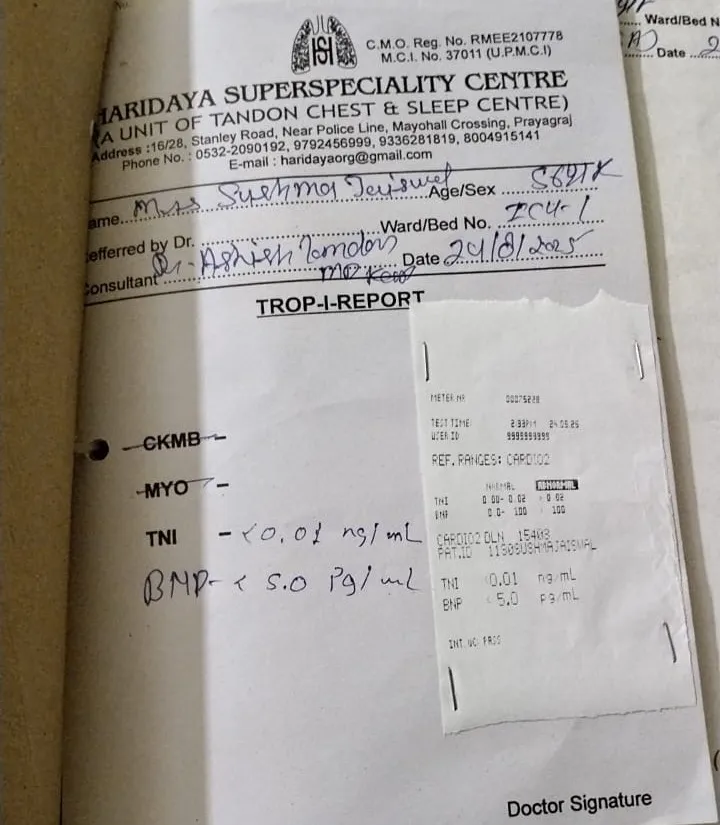 C.M.O. Reg. No. RMEE2107778
M.C.I. No. 37011 (U.P.M.C.I)
HARIDAYA SUPERSPECIALITY CENTRE
(A UNIT OF TANDON CHEST & SLEEP CENTRE)
Address :16/28, Stanley Road, Near Police Line, Mayohall Crossing, Prayagraj
Phone No. : 0532-2090192, 9792456999, 9336281819, 8004915141
E-mail : haridayaorg@gmail.com
ame. Mrs Sushma Jaiswal Age/Sex
efferred by Dr. Ward/Bed No. ICU-1
onsultant Dr. Ashish Tandon Date 24/8/2025
TROP-I-REPORT
CKMB -
MYO -
TNI - <0.01 ng/mL
BMP- < 5.0 Pg/mL
METER NR
TEST TIME 2:33PM
USER ID 9999999999
REF. RANGES: CARDIO2
NORMAL ABNORMAL
TNI 0.00- 0.02 > 0.02
BNP 0.0- 100 > 100
CARDIO2 DLN 15403
PAT.ID 11308SUSHMAJAISWAL
TNI <0.01 ng/mL
BNP < 5.0 pg/mL
INT. QC: PASS
Doctor Signature
Ward/Bed N
Date